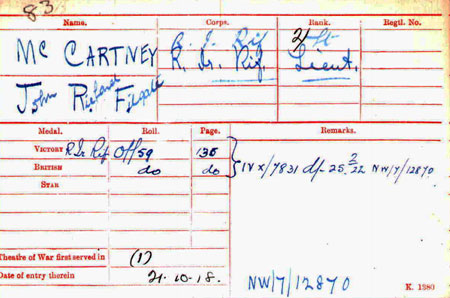 83
Name. Corps. Rank. Regtl. No.
Mc CARTNEY R. I. Rif 2/Lt
R. Ir. Rif. Lieut.
John Richard
Medal. Roll. Page. Remarks.
VICTORY R Ir Rif Off 59 135
BRITISH do do } IV X/7831 d/- 25.2.22 NW/7/12870
STAR
Theatre of War first served in (1)
Date of entry therein 21.10.18. NW/7/12870 K. 1380